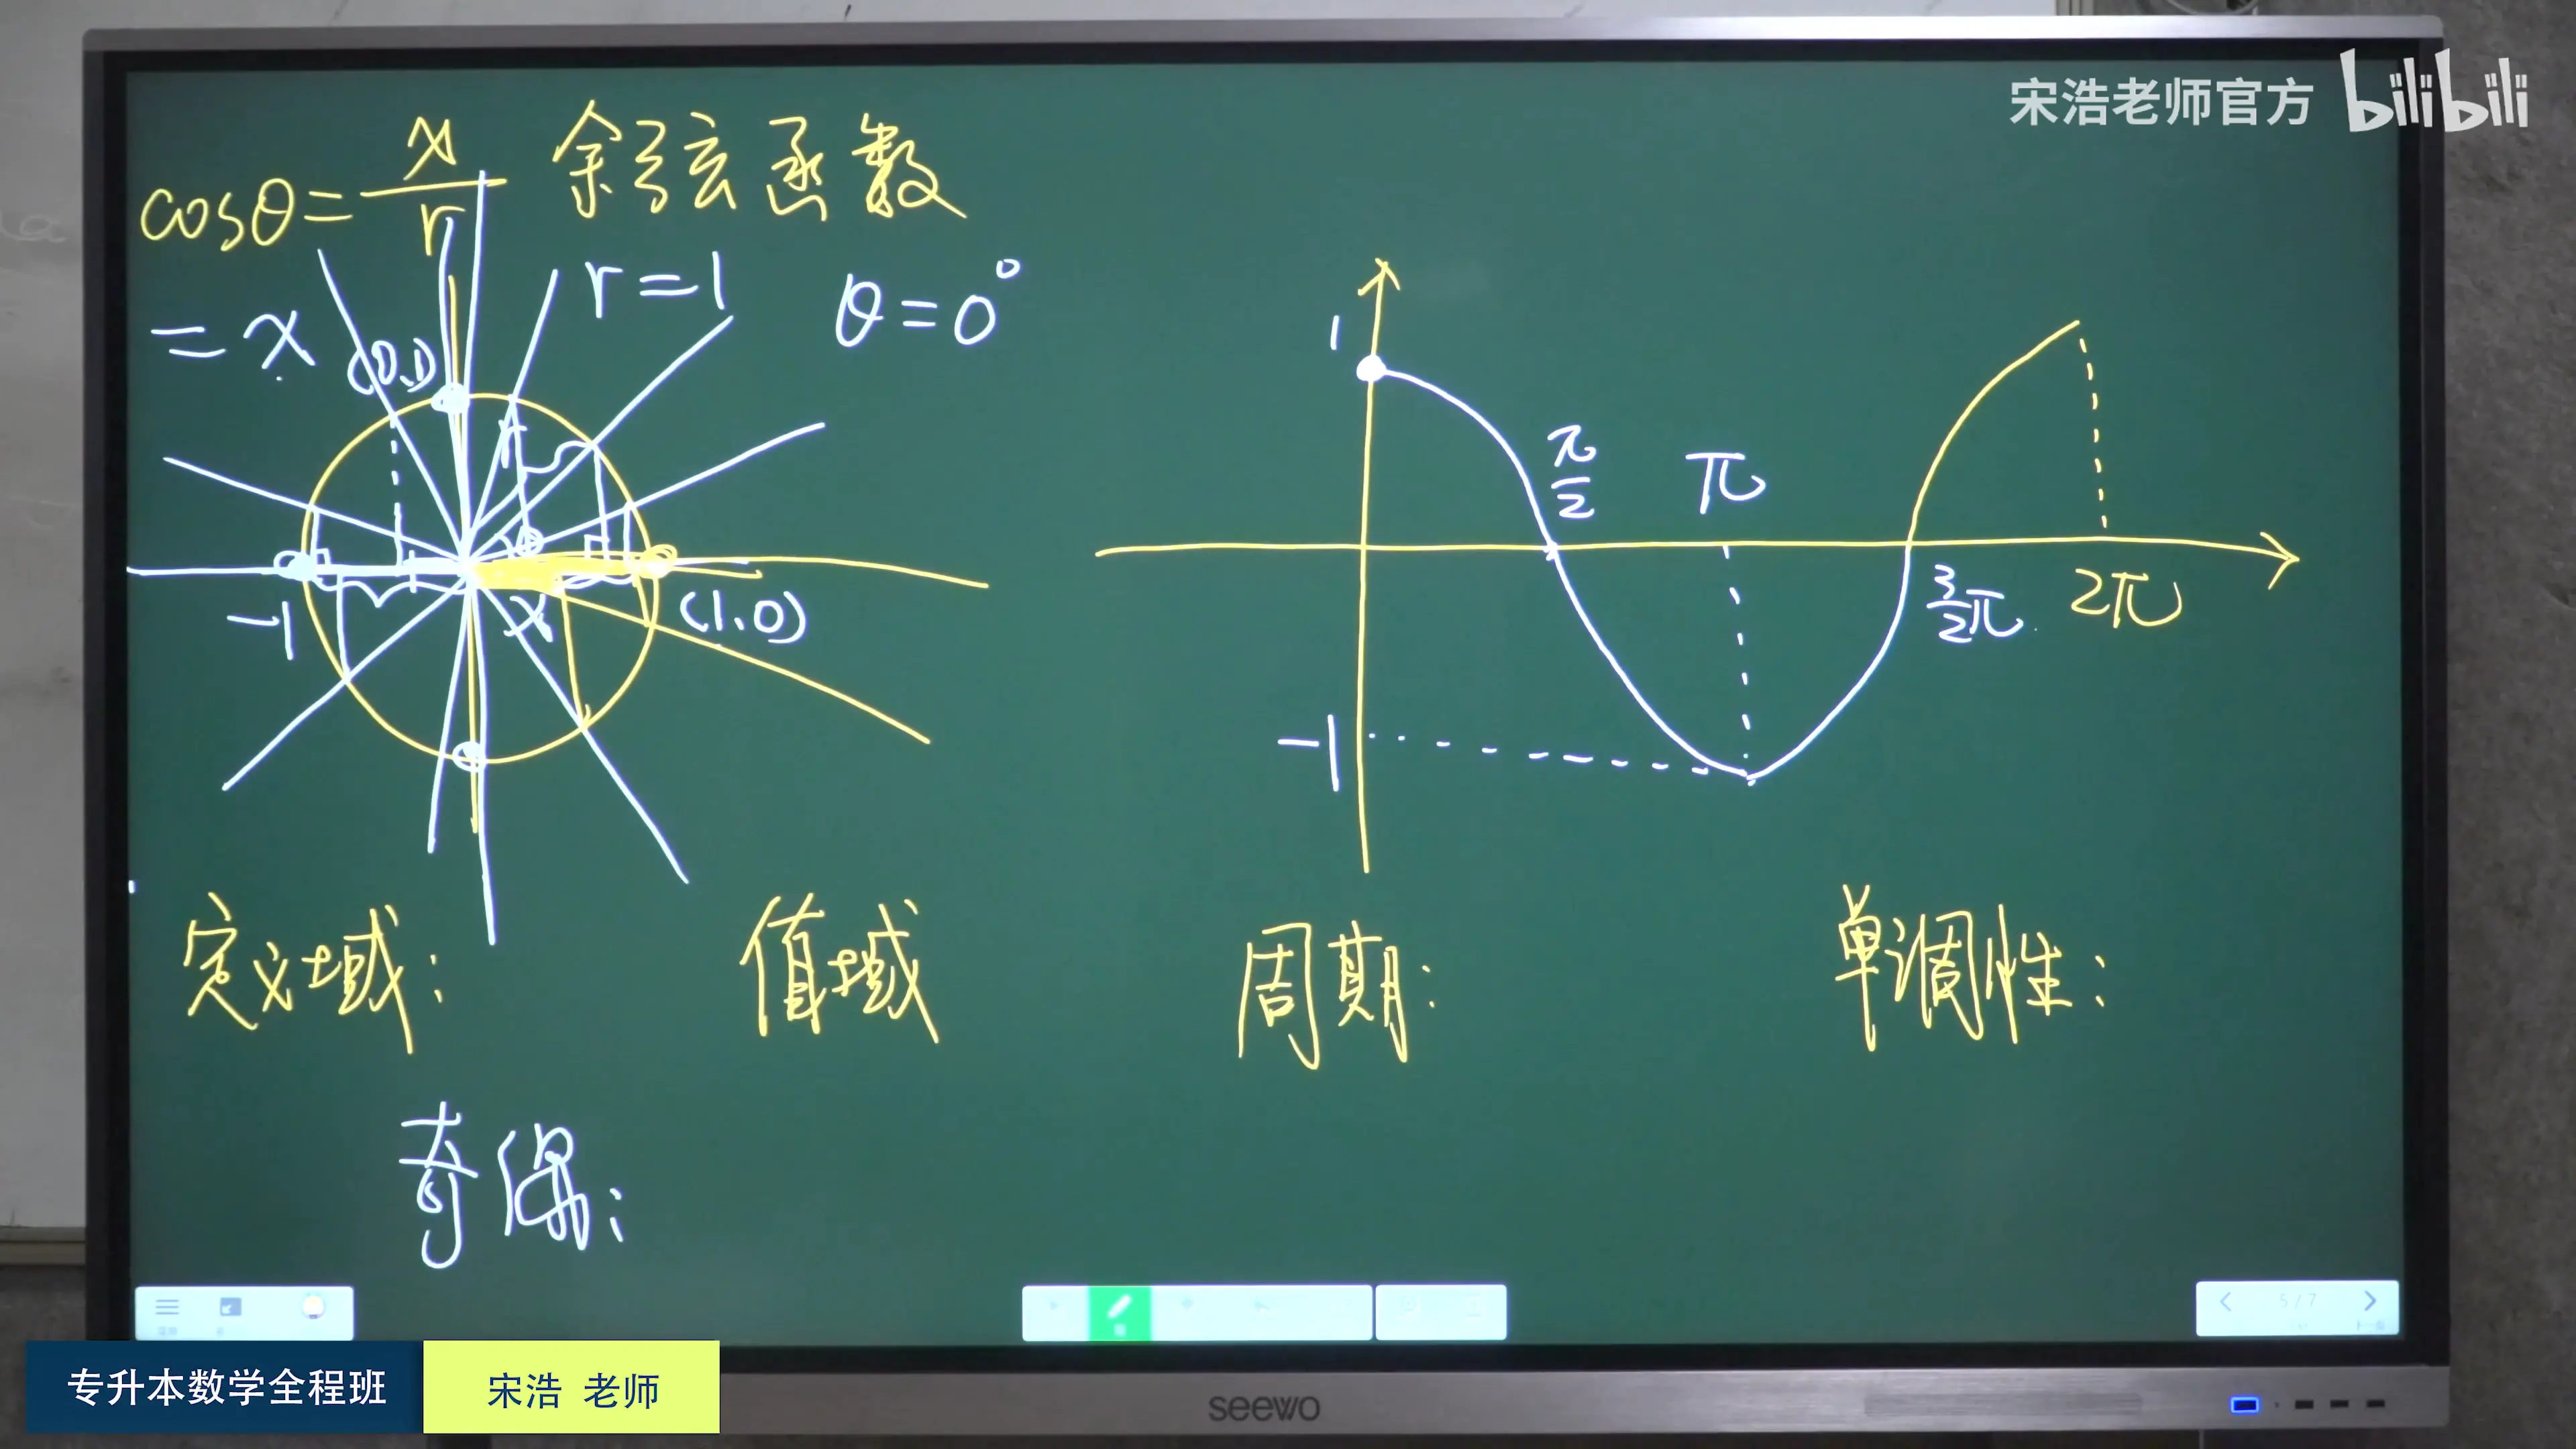 宋浩老师官方 bilibili
cosθ = x/r 余弦函数
= x
r = 1 θ = 0°
(0,1)
r
θ
x
(1,0)
-1
1
π/2
π
3/2π
2π
-1
定义域:
值域
周期:
单调性:
奇偶:
5/7
专升本数学全程班
宋浩 老师
seewo